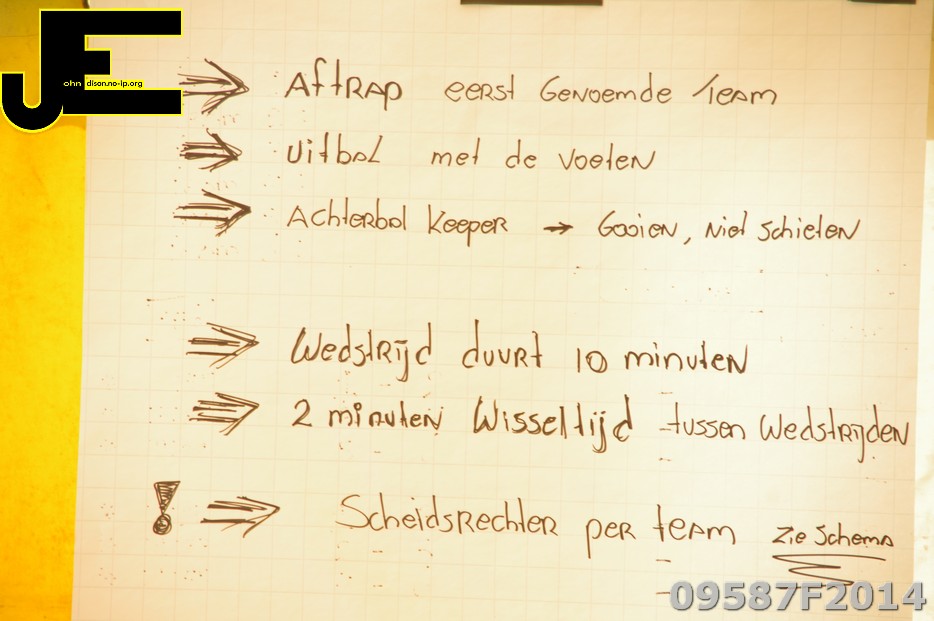 JE
ohn dison.no-ip.org
⇒ Aftrap eerst Genoemde Team
⇒ Uitbal met de voeten
⇒ Achterbal Keeper → Gooien, niet schieten
⇒ Wedstrijd duurt 10 minuten
⇒ 2 minuten Wisseltijd tussen Wedstrijden
! ⇒ Scheidsrechter per team zie schema
09587F2014